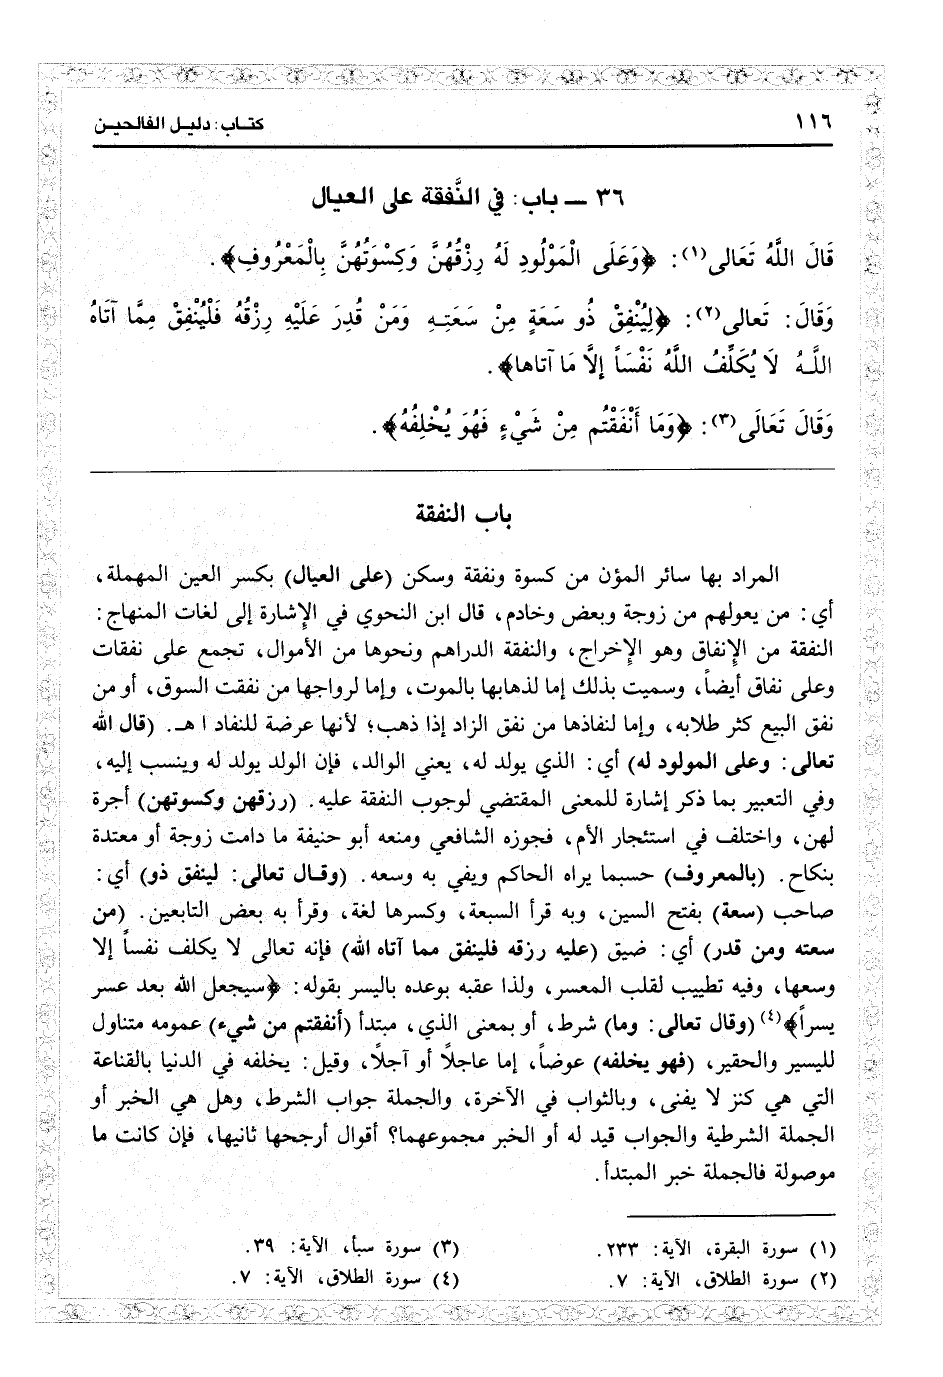 ١١٦
كتاب: دليل الفالحين
٣٦ ــ باب: في النَّفقة على العيال
قَالَ اللَّهُ تَعَالى(١): ﴿وَعَلَى الْمَوْلُودِ لَهُ رِزْقُهُنَّ وَكِسْوَتُهُنَّ بِالْمَعْرُوفِ﴾.
وَقَالَ: تَعالى(٢): ﴿لِيُنْفِقْ ذُو سَعَةٍ مِنْ سَعَتِهِ وَمَنْ قُدِرَ عَلَيْهِ رِزْقُهُ فَلْيُنْفِقْ مِمَّا آتَاهُ
اللَّهُ لَا يُكَلِّفُ اللَّهُ نَفْسَاً إلاَّ مَا آتاها﴾.
وَقَالَ تَعَالَى(٣): ﴿وَمَا أَنْفَقْتُم مِنْ شَيْءٍ فَهُوَ يُخْلِفُهُ﴾.
باب النفقة
المراد بها سائر المؤن من كسوة ونفقة وسكن (على العيال) بكسر العين المهملة،
أي: من يعولهم من زوجة وبعض وخادم، قال ابن النحوي في الإشارة إلى لغات المنهاج:
النفقة من الإنفاق وهو الإخراج، والنفقة الدراهم ونحوها من الأموال، تجمع على نفقات
وعلى نفاق أيضاً، وسميت بذلك إما لذهابها بالموت، وإما لرواجها من نفقت السوق، أو من
نفق البيع كثر طلابه، وإما لنفاذها من نفق الزاد إذا ذهب؛ لأنها عرضة للنفاد ا هـ. (قال الله
تعالى: وعلى المولود له) أي: الذي يولد له، يعني الوالد، فإن الولد يولد له وينسب إليه،
وفي التعبير بما ذكر إشارة للمعنى المقتضي لوجوب النفقة عليه. (رزقهن وكسوتهن) أجرة
لهن، واختلف في استئجار الأم، فجوزه الشافعي ومنعه أبو حنيفة ما دامت زوجة أو معتدة
بنكاح. (بالمعروف) حسبما يراه الحاكم ويفي به وسعه. (وقال تعالى: لينفق ذو) أي:
صاحب (سعة) بفتح السين، وبه قرأ السبعة، وكسرها لغة، وقرأ به بعض التابعين. (من
سعته ومن قدر) أي: ضيق (عليه رزقه فلينفق مما آتاه الله) فإنه تعالى لا يكلف نفساً إلا
وسعها، وفيه تطييب لقلب المعسر، ولذا عقبه بوعده باليسر بقوله: ﴿سيجعل الله بعد عسر
يسراً﴾(٤) (وقال تعالى: وما) شرط، أو بمعنى الذي، مبتدأ (أنفقتم من شيء) عمومه متناول
لليسير والحقير، (فهو يخلفه) عوضاً، إما عاجلاً أو آجلاً، وقيل: يخلفه في الدنيا بالقناعة
التي هي كنز لا يفنى، وبالثواب في الآخرة، والجملة جواب الشرط، وهل هي الخبر أو
الجملة الشرطية والجواب قيد له أو الخبر مجموعهما؟ أقوال أرجحها ثانيها، فإن كانت ما
موصولة فالجملة خبر المبتدأ.
(١) سورة البقرة، الآية: ٢٣٣.
(٢) سورة الطلاق، الآية: ٧.
(٣) سورة سبأ، الآية: ٣٩.
(٤) سورة الطلاق، الآية: ٧.